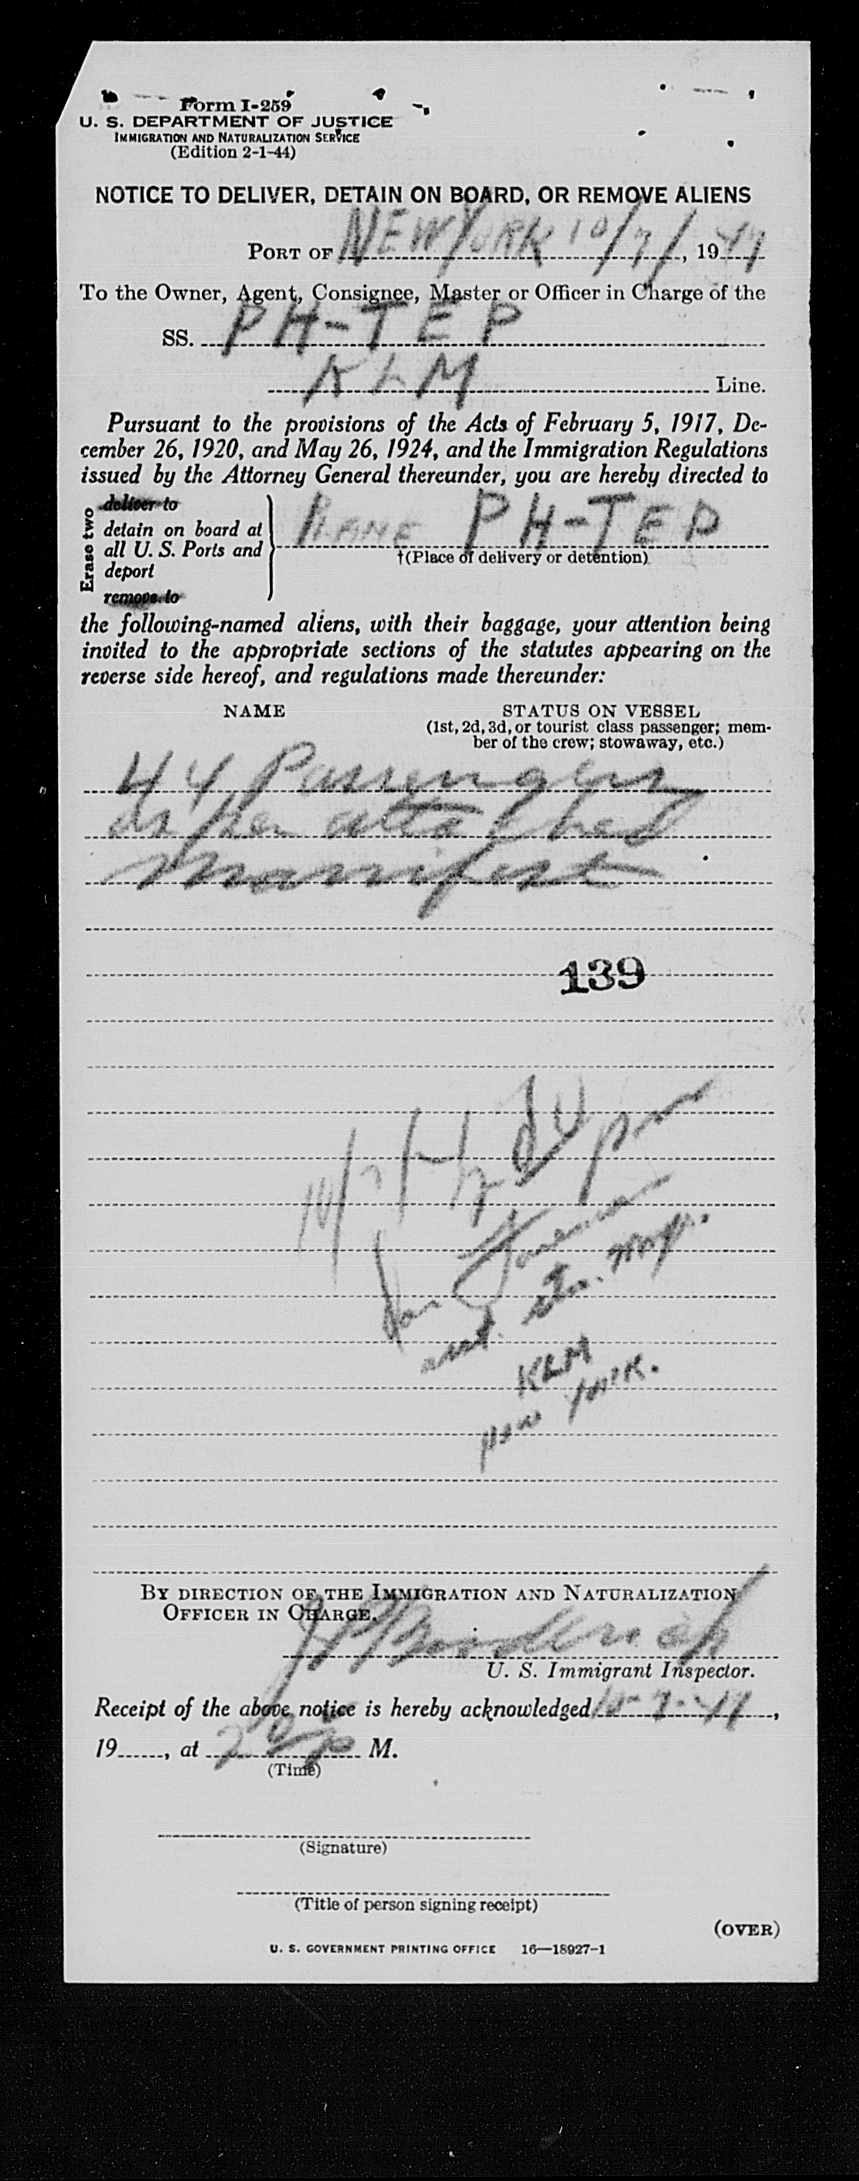 Form I-259
U. S. DEPARTMENT OF JUSTICE
IMMIGRATION AND NATURALIZATION SERVICE
(Edition 2-1-44)
NOTICE TO DELIVER, DETAIN ON BOARD, OR REMOVE ALIENS
PORT OF NEW YORK 10/7/, 1947
To the Owner, Agent, Consignee, Master or Officer in Charge of the
SS. PH-TEP
KLM Line.
Pursuant to the provisions of the Acts of February 5, 1917, De-
cember 26, 1920, and May 26, 1924, and the Immigration Regulations
issued by the Attorney General thereunder, you are hereby directed to
Erase two
deliver to
detain on board at
all U. S. Ports and
deport
remove to
PLANE PH-TEP
†(Place of delivery or detention)
the following-named aliens, with their baggage, your attention being
invited to the appropriate sections of the statutes appearing on the
reverse side hereof, and regulations made thereunder:
NAME STATUS ON VESSEL
(1st, 2d, 3d, or tourist class passenger; mem-
ber of the crew; stowaway, etc.)
44 Passengers
as per attached
Manifest
139
10/7/47 pm
asst. sta. Mgr.
KLM
New York.
BY DIRECTION OF THE IMMIGRATION AND NATURALIZATION
OFFICER IN CHARGE.
U. S. Immigrant Inspector.
Receipt of the above notice is hereby acknowledged 10-7-47,
19......, at 2 p M.
(Time)
(Signature)
(Title of person signing receipt)
(OVER)
U. S. GOVERNMENT PRINTING OFFICE 16—18927-1